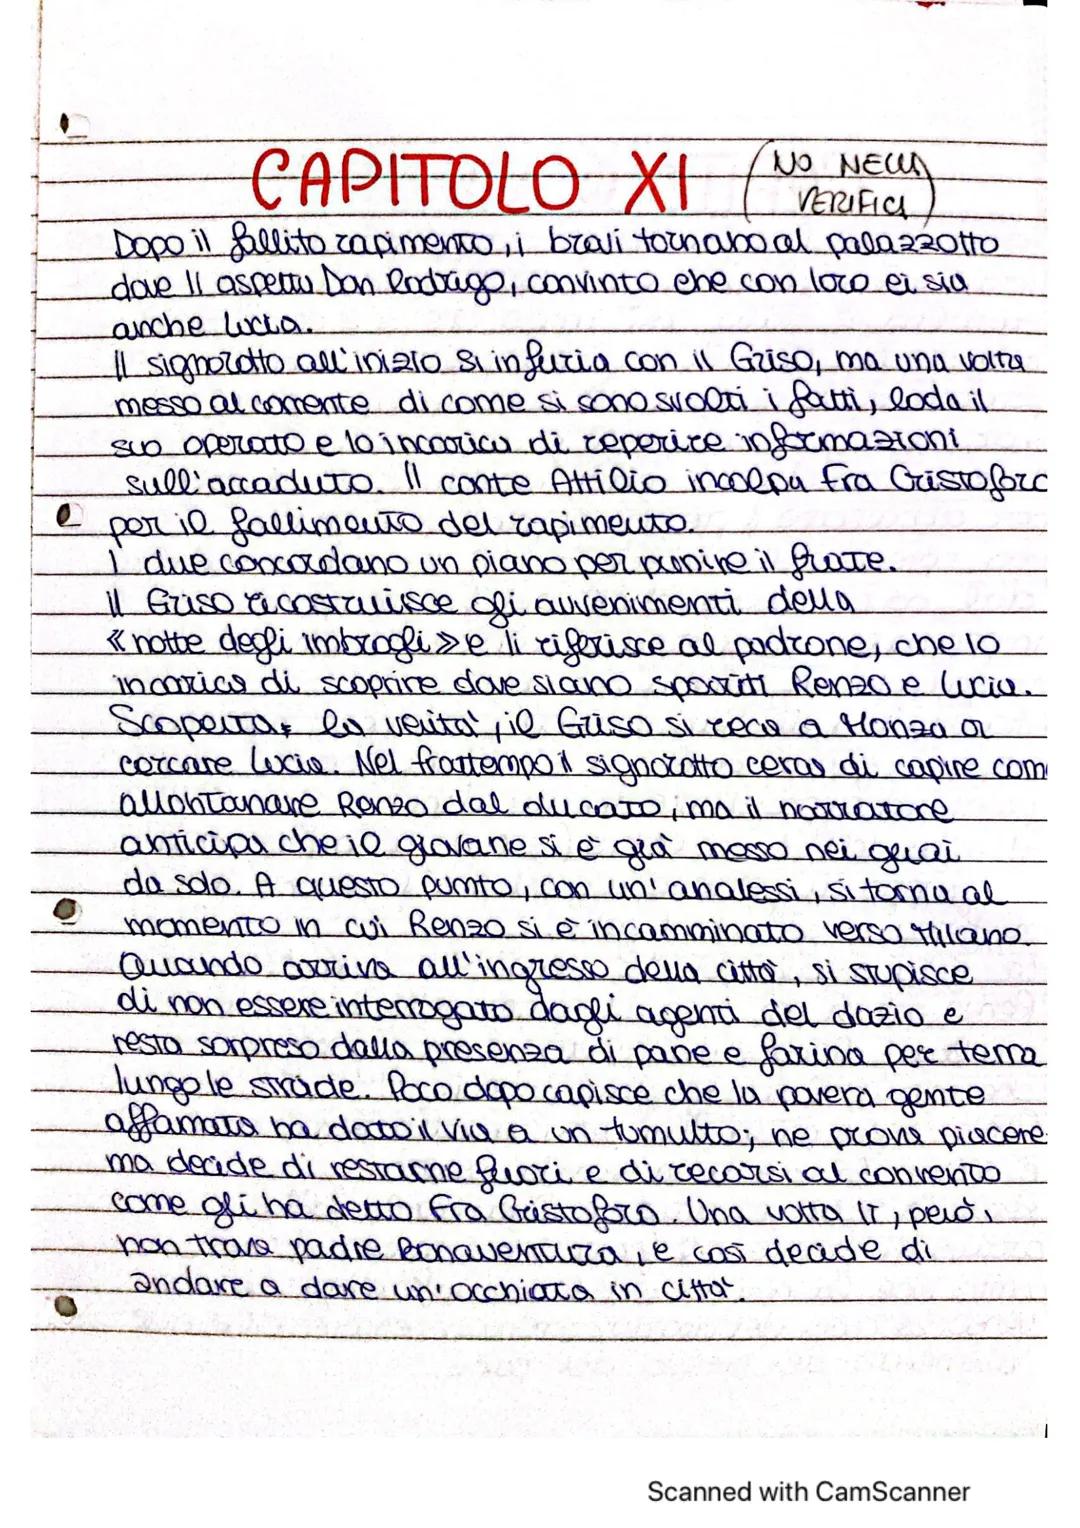 CAPITOLO XI (NO NELLA
VERIFICA)
Dopo il fallito rapimento, i bravi tornano al palazzotto
dove li aspetta Don Rodrigo, convinto che con loro ci sia
anche Lucia.
Il signorotto all'inizio si infuria con il Griso, ma una volta
messo al corrente di come si sono svolti i fatti, loda il
suo operato e lo incarica di reperire informazioni
sull'accaduto. Il conte Attilio incolpa Fra Cristoforo
per il fallimento del rapimento.
I due concordano un piano per punire il frate.
Il Griso ricostruisce gli avvenimenti della
«notte degli imbrogli» e li riferisce al padrone, che lo
incarica di scoprire dove siano spariti Renzo e Lucia.
Scoperta la verità, il Griso si reca a Monza a
cercare Lucia. Nel frattempo il signorotto cerca di capire com
allontanare Renzo dal ducato, ma il narratore
anticipa che il giovane si è già messo nei guai
da solo. A questo punto, con un'analessi, si torna al
momento in cui Renzo si è incamminato verso Milano.
Quando arriva all'ingresso della città, si stupisce
di non essere interrogato dagli agenti del dazio e
resta sorpreso dalla presenza di pane e farina per terra
lungo le strade. Poco dopo capisce che la povera gente
affamata ha dato il via a un tumulto; ne prova piacere
ma decide di restarne fuori e di recarsi al convento
come gli ha detto Fra Cristoforo. Una volta lì, però,
non trova padre Bonaventura, e così decide di
andare a dare un'occhiata in città.
Scanned with CamScanner